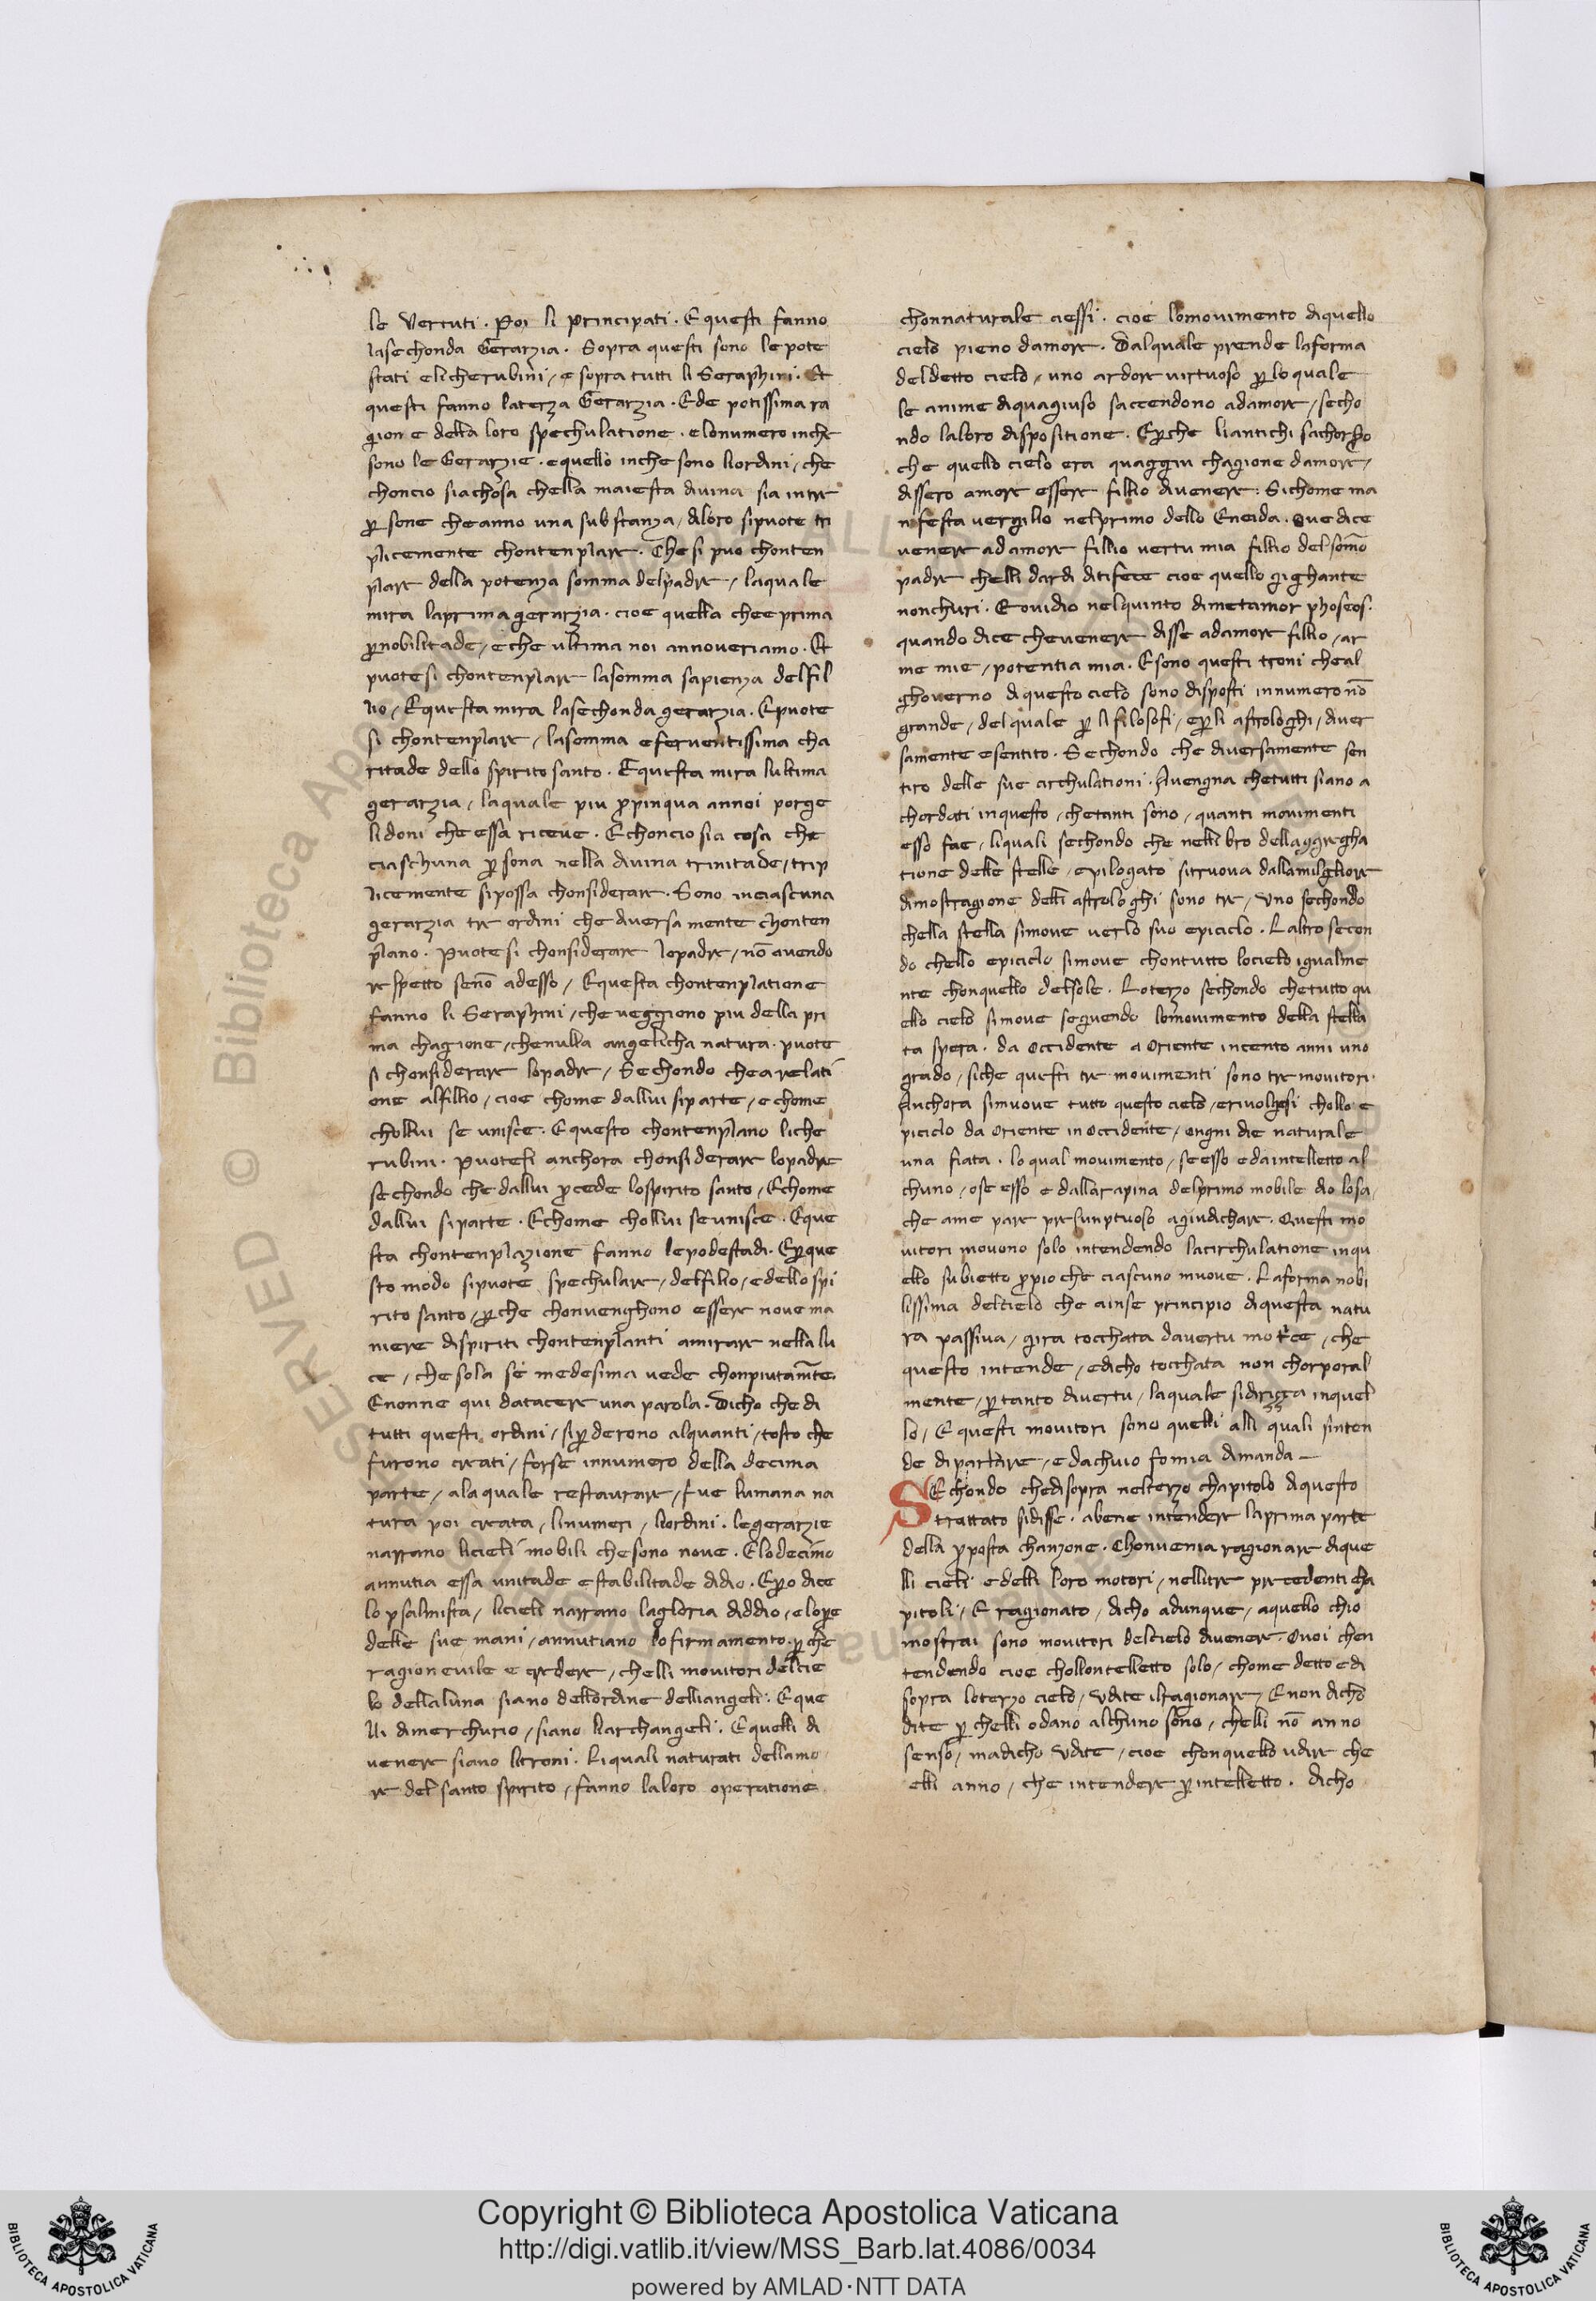 le Vertuti. Poi li principati. E questi fanno
lasechonda Gerarzia. Sopra questi sono le pote
stati elicherubini / e sopra tutti li Seraphini. Et
questi fanno laterza Gerarzia. Ede potissima ra
gione della loro spechulatione. elonumero inche
sono le Gerarzie. equello inche sono liordini / che
choncio siachosa chella maiesta divina sia intre
ꝑsone cheanno una substanza / diloro sipuote tri
plicemente chontenplare. Che si puo chonten
plare della potenza somma delpadre / laquale
mira laprima gerarzia. cioe quella chee prima
ꝑnobilitade / eche ultima noi annoveriamo. Et
puotesi chontenplare lasomma sapienza delfil
lio / Equesta mira lasechonda gerarzia. Epuote
si chontenplare / lasomma eferventissima cha
ritade dello spirito santo. Equesta mira lultima
gerarzia / laquale piu ꝓpinqua annoi porge
lidoni che essa riceve. Echoncio sia cosa che
ciaschuna ꝑsona nella divina trinitade / trip
licemente sipossa chonsiderare. Sono inciascuna
gerarzia tre ordini che diversa mente chonten
plano. Puotesi chonsiderare lopadre / nō avendo
respetto senō adesso / Equesta chontenplatione
fanno li Seraphini / cheveggieno piu della pri
ma chagione / chenulla angelicha natura. puote
si chonsiderare lopadre / Sechondo chea relati
one alfillio / cioe chome dallui siparte / e chome
chollui se unisce. Equesto chontenplano liche
rubini. Puotesi anchora chonsiderare lopadre
sechondo che dallui ꝓcede lospirito santo / Echome
dallui siparte. Echome chollui seunisce. Eque
sta chontenplazione fanno lepodestadi. Eꝑque
sto modo sipuote spechulare / delfilio / edello spi
rito santo / ꝑche chonvenghono essere nove ma
niere dispiriti chontenplanti amirare nella lu
ce / che sola se medesima vede chonpiutamēte.
Enonne qui datacere una parola. Dicho che di
tutti questi ordini / siꝑderono alquanti / tosto che
furono creati / forse innumero della decima
parte / ala quale restaurare / fue lumana na
tura poi creata / linumeri / liordini. legerarzie
narrano licieli mobili chesono nove. Elodecimo
annutia essa unitade estabilitade didio. Eꝑo dice
lo psalmista / licieli narrano lagloria diddio / elope
delle sue mani / annutiano lo firmamento. ꝑche
ragionevile e credere / chelli movitori delcie
lo dellaluna siano dellordine delliangeli. Eque
lli dimerchurio / siano liarchangeli. Equelli di
venere siano litroni. Liquali naturati dellamo
re del santo spirito / fanno laloro operatione
chonnaturale aessi. cioe lomovimento diquello
cielo pieno damore. Dalquale prende laforma
deldetto cielo / uno ardore virtuoso ꝑ lo quale
le anime diquagiuso saccendono adamore / secho
ndo laloro dispositione. Eꝑche liantichi sachorsꝑo
che quello cielo era quaggiu chagione damore /
dissero amore essere fillio divenere: Sichome ma
nifesta vergilio nelprimo dello Eneida. Ove dice
venere ad amore fillio vertu mia fillio del somo
padre chelli dardi ditifece cioe quello gighante
nonchuri. Eovidio nelquinto dimetamor phoseos.
quando dice chevenere disse adamore fillio / ar
me mie / potentia mia. Esono questi troni cheal
ghoverno diquesto cielo sono disposti innumero nō
grande / delquale ꝑ li filosofi / eꝑli astrologhi / diver
samente esentito. Sechondo che diversamente sen
tiro delle sue circhulationi. Avengna chetutti siano a
chordati inquesto / chetanti sono / quanti movimenti
esso fae / liquali sechondo che nelli bro dellaggregha
tione delle stelle / epilogato sitruova dallamilgliore
dimostragione delli astrologhi sono tre / uno sechondo
chella stella simove verlo suo epiciclo. Laltro secon
do chello epiciclo simove chontutto locielo igualme
nte chonquello delsole. Loterzo sechondo chetutto qu
ello cielo simove seguendo lomovimento della stella
ta spera. da Occidente a Oriente incento anni uno
grado / siche questi tre movimenti sono tre movitori.
Anchora simuove tutto questo cielo / erivolgesi chollo e
piciclo da Oriente in Occidente / ongni die naturale
una fiata. lo qual movimento / se esso e daintelletto al
chuno / ose esso e dallarapina delprimo mobile dio losa /
che ame pare presunptuoso agiudichare. Questi mo
vitori movono solo intendendo lacirchulatione inqu
ello subietto ꝓpio che ciascuno muove. Laforma nobi
lissima delcielo che ainse principio diquesta natu
ra passiva / gira tocchata davertu motrice / che
questo intende / edicho tocchata non chorporal
mente / ꝑ tanto divertu / laquale sidirizza inquel
lo / E questi movitori sono quelli alli quali sinten
de dipartare / e dachuio fomia dimanda —
SEchondo chedisopra nelterzo chapitolo diquesto
trattato sidisse. abene intendere laprima parte
della ꝓposta chanzone. Chonvenia ragionare dique
lli cieli edelli loro motori / nellitre precedenti cha
pitoli / E ragionato / dicho adunque / aquello chio
mostrai sono movitori delcielo divenere. Ovoi chen
tendendo cioe chollontelletto solo / chome detto edi
sopra loterzo cielo / Udite ilragionare / Enon dicho
dite ꝑ chelli odano alchuno sono / chelli nō anno
senso / madicho Udite / cioe chonquello udire che
elli anno / che intendere ꝑintelletto. dicho
Copyright © Biblioteca Apostolica Vaticana
http://digi.vatlib.it/view/MSS_Barb.lat.4086/0034
powered by AMLAD·NTT DATA
BIBLIOTECA APOSTOLICA VATICANA
BIBLIOTECA APOSTOLICA VATICANA